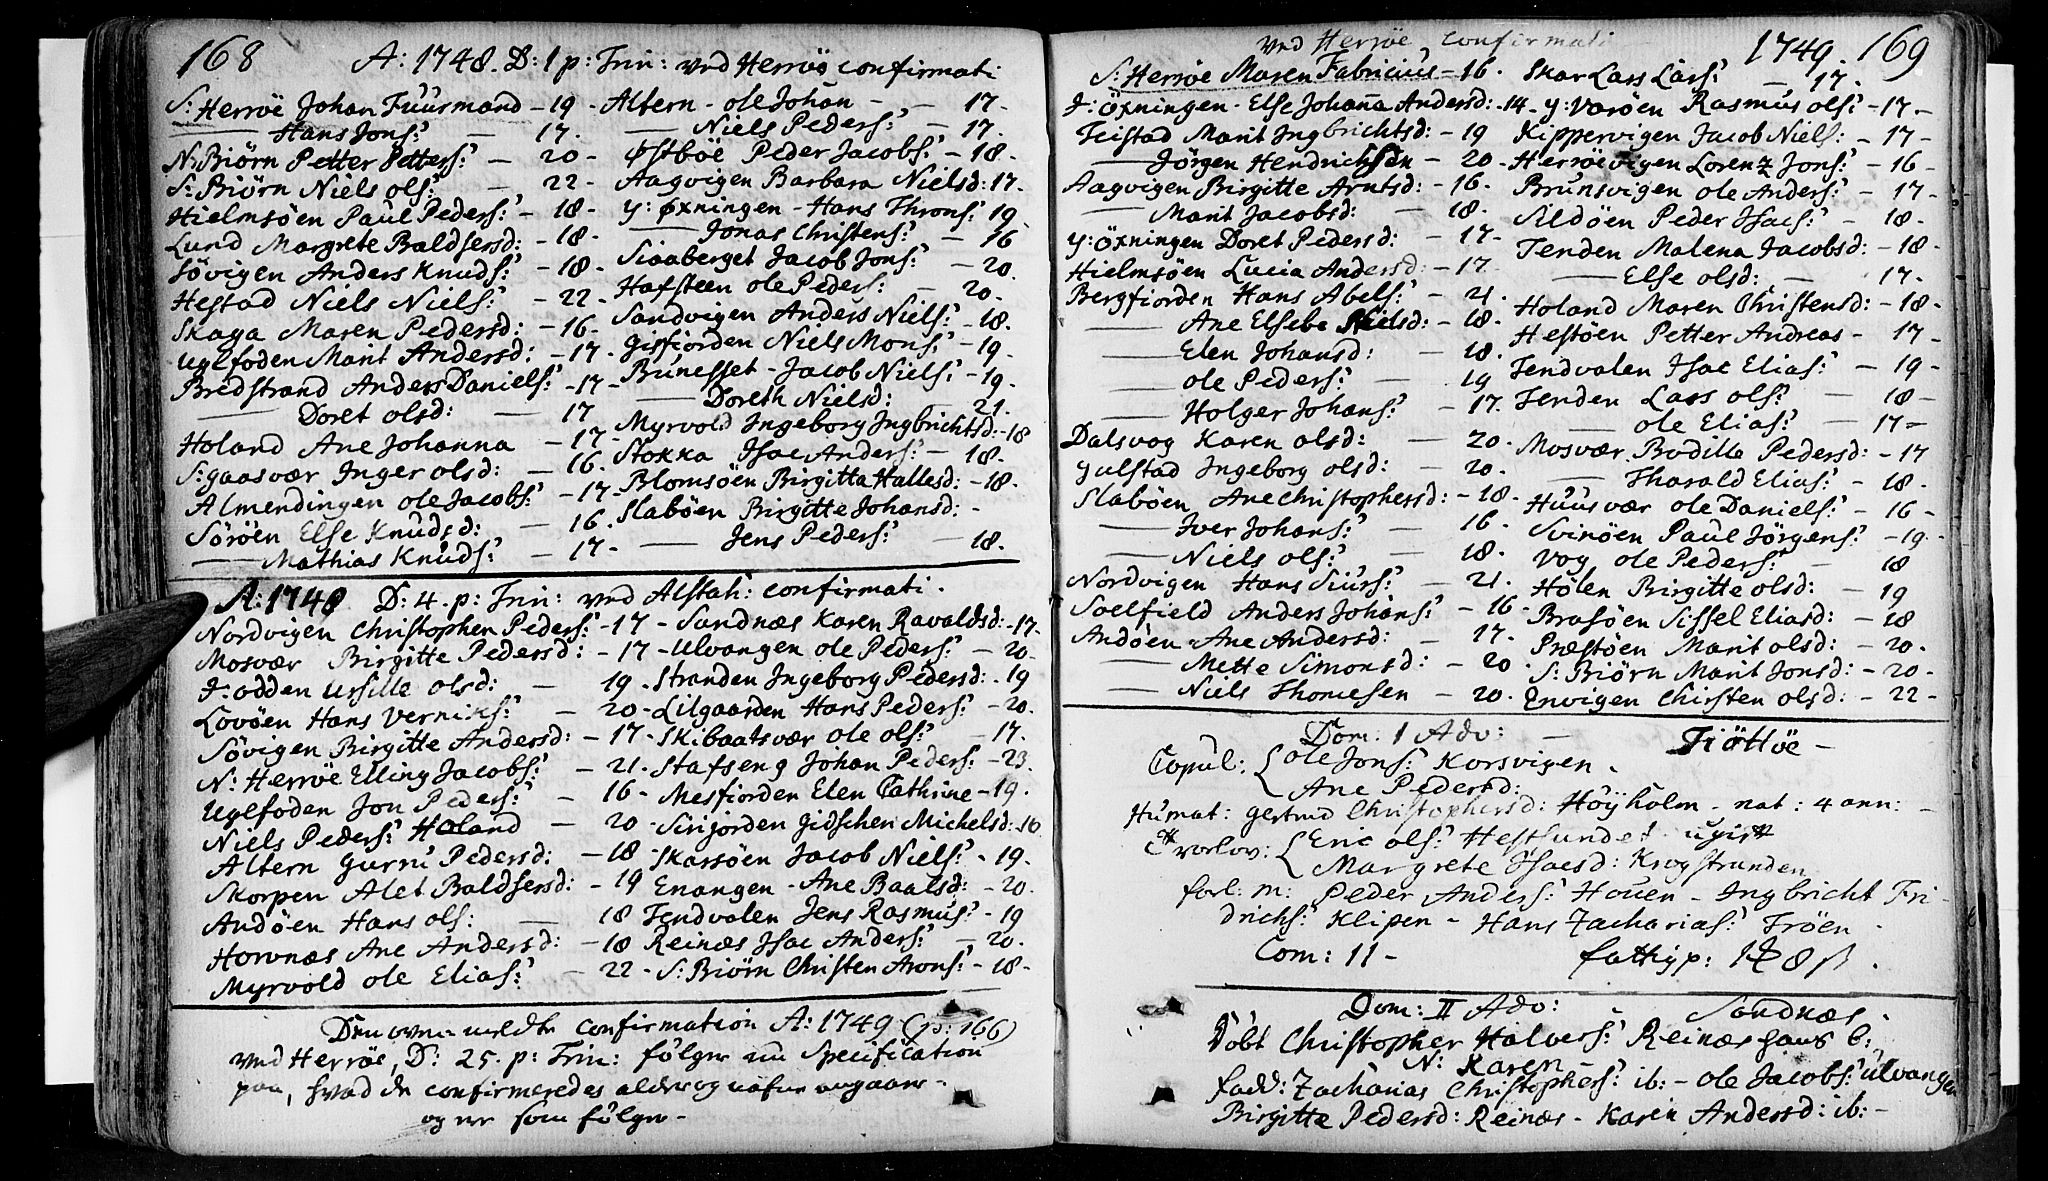 168
A: 1748. D: 1 p: Trin: ved Herröe confirmati
S: Herröe Johan Fuurmand - 19 -
Hans Jons: - 17.
N: Biörn Petter Petters: - 20 -
S: Biörn Niels ols: - 22 -
Hielmsöen Paul Peders: - 18 -
Lund Margrete Baldsersd: - 18 -
Sövigen Anders Knuds: - 18 -
Hestad Niels Niels: - 22 -
Skaga Maren Pedersd: - 16 -
Uglfoden Marit Andersd: - 17.
Bredstrand Anders Daniels: - 17 -
Doret olsd: - 17
Holand Ane Johanna - 17 -
S: gaasvær Inger olsd: - 16.
Almendingen ole Jacobs: - 17 -
Söröen Else Knudsd: - 16.
Mathias Knuds: - 17 -
Altern - ole Johan - - 17 -
Niels Peders: - 17.
Östböe Peder Jacobs: - 18 -
Aagvigen Barbara Nielsd: 17.
y: öxningen - Hans Throns: 19.
Jonas Christens: - 16
Siaaberget Jacob Jons: - 20.
Hafsteen ole Peders: - 20 -
Sandvigen Anders Niels: - 18.
Gisfiorden Niels Mons: - 19 -
Bunesset - Jacob Niels: - 19 -
Doreth Nielsd: - 21.
Myrvold Ingeborg Ingbrichtsd: - 18
Stokka Isac Anders: - 18.
Blomsöen Birgitta Hallesd: - 18.
Slaböen Birgitte Johansd: -
Jens Peders: - 18.
A: 1748 D: 4. p: Trin: ved Alstah: confirmati.
Nordvigen Christopher Peders: - 17 -
Mosvær Birgitte Pedersd: - 17 -
I: odden Ursille olsd: - 19 -
Lovöen Hans Verniks: - 20 -
Sövigen Birgitte Andersd: - 17 -
N: Herröe Elling Jacobs: - 21.
Uglfoden Jon Peders: - 16 -
Niels Peders: Holand - 20 -
Altern Gurni Pedersd: - 18 -
Skorpen Alet Baldsersd: - 19
Andöen Hans ols: - 18
Hornnæs Ane Andersd: - 18
Myrvold ole Elias: - 22 -
Sandnæs Karen Ravaldsd: - 17.
Ulvangen ole Peders: - 20.
Stranden Ingeborg Pedersd: - 19
Lilgaarden Hans Peders: - 20.
Skibaatsvær ole ols: - 17.
Stafseng Johan Peders: - 23.
Mesfiorden Elen Cathrine - 19.
Sirijorden Gidschen Michelsd: 16
Skarsöen Jacob Niels: - 19.
Enangen - Ane Baalsd: - 20.
Tendvalen Jens Rasmus: - 19
Reinæs Isac Anders: - 20.
S: Biörn Christen Arons: - 18 -
Den oven meldte confirmation A: 1749 (p: 166)
ved Herröe, D: 25. p: Trin: følger nu Specification
paa, hvad de confirmeredes alder og nafne angaar -
og er som følger -
ved Herröe confirmati 1749. 169
S: Herröe Maren Fabricius - 16.
I: öxningen - Else Johanna Andersd: - 14 -
Teistad Marit Ingbrichtsd: - 19
Jörgen Hendrichsen - 20 -
Aagvigen Birgitte Arntsd: - 16.
Marit Jacobsd: - 18.
y: öxningen Doret Pedersd: - 17 -
Hielmsöen Lucia Andersd: - 17.
Bergfiorden Hans Abels: - 21.
Ane Elsebe Nielsd: - 18 -
Elen Johansd: - 18.
ole Peders: - 19
Holger Johans: - 17.
Dalsvog Karen olsd: - 20.
Gulstad Ingeborg olsd: - 20.
Slaböen Ane Christophersd: - 18 -
Iver Johans: - 16 -
Niels ols: - 18.
Nordvigen Hans Siurs: - 21.
Soelfield Anders Johans: - 16 -
Andöen Ane Andersd: - 17.
Mette Simonsd: - 20
Niels Thomesen - 20.
Skar Lars Lars: - 17.
y: Varöen Rasmus ols: - 17 -
Kippervigen Jacob Niels: - 17 -
Herröevigen Lorenz Jons: - 16 -
Brunsvigen ole Anders: - 17 -
Sildöen Peder Isacs: - 18 -
Tenden Malena Jacobsd: - 18 -
Else olsd: - 17.
Holand Maren Christensd: - 18 -
Hestöen Petter Andreas - 17 -
Tendvalen Isac Elias: - 19 -
Tenden Lars ols: - 18 -
ole Elias: - 17 -
Mosvær Bodille Pedersd: - 17
Tharald Elias: - 18.
Huusvær ole Daniels: - 16 -
Svinöen Paul Jörgens: - 19 -
Vog ole Peders: - 18
Hölen Birgitte olsd: - 19
Brasöen Sissel Eliasd: - 18
Præstöen Marit olsd: - 20.
S: Biörn Marit Jonsd: - 20 -
Envigen Chirsten olsd: - 22 -
Dom: 1 Adv: - Tiöttöe -
Copul: { Ole Jons: Korsvigen.
Ane Pedersd:
Humat: Gertrud Christophersd: Höyholm - nat: 4 ann: -
Trorlov: { Eric ols: Hestsundet ugift
Margrete Isacsd: Krogstranden
forl: m: Peder Anders: Houen - Ingbricht Fri-
drichs: Klipen - Hans Zacharias: Tröen.
Com: 11 - fattigp:
Dom: II Adv: Sandnæs.
Döbt Christopher Halvers: Reinæs hans b:
N: Karen -
fadd: Zacharias Christophers: ib: - ole Jacobs: Ulvangen
Birgitte Pedersd: Reinæs - Karen Andersd: ib: -